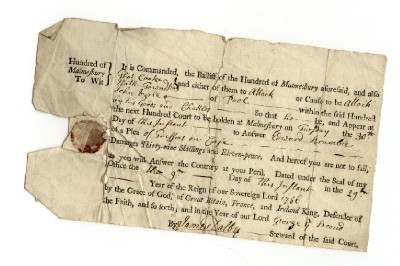 Hundred of
Malmesbury
To Wit
IT is Commanded, the Bailiff of the Hundred of Malmesbury aforesaid, and also
and either of them to Attach or Cause to be Attach
John of Pool within the said Hundred
by his Goods and Chattles So that he be, and Appear at
the next Hundred Court to be holden at Malmesbury on Tuesday the 30th
Day of this Instant to Answer Edward
of a Plea of Trespass on Case
Damages Thirty-nine Shillings and Eleven-pence. And hereof you are not to fail,
as you will Answer the Contrary at your Peril. Dated under the Seal of my
Office the 9th Day of This Instant in the 29th
Year of the Reign of our Sovereign Lord George y Second
by the Grace of God, of Great Britain, France, and Ireland King, Defender of
the Faith, and so forth; and in the Year of our Lord 1756
By James Steward of the said Court.